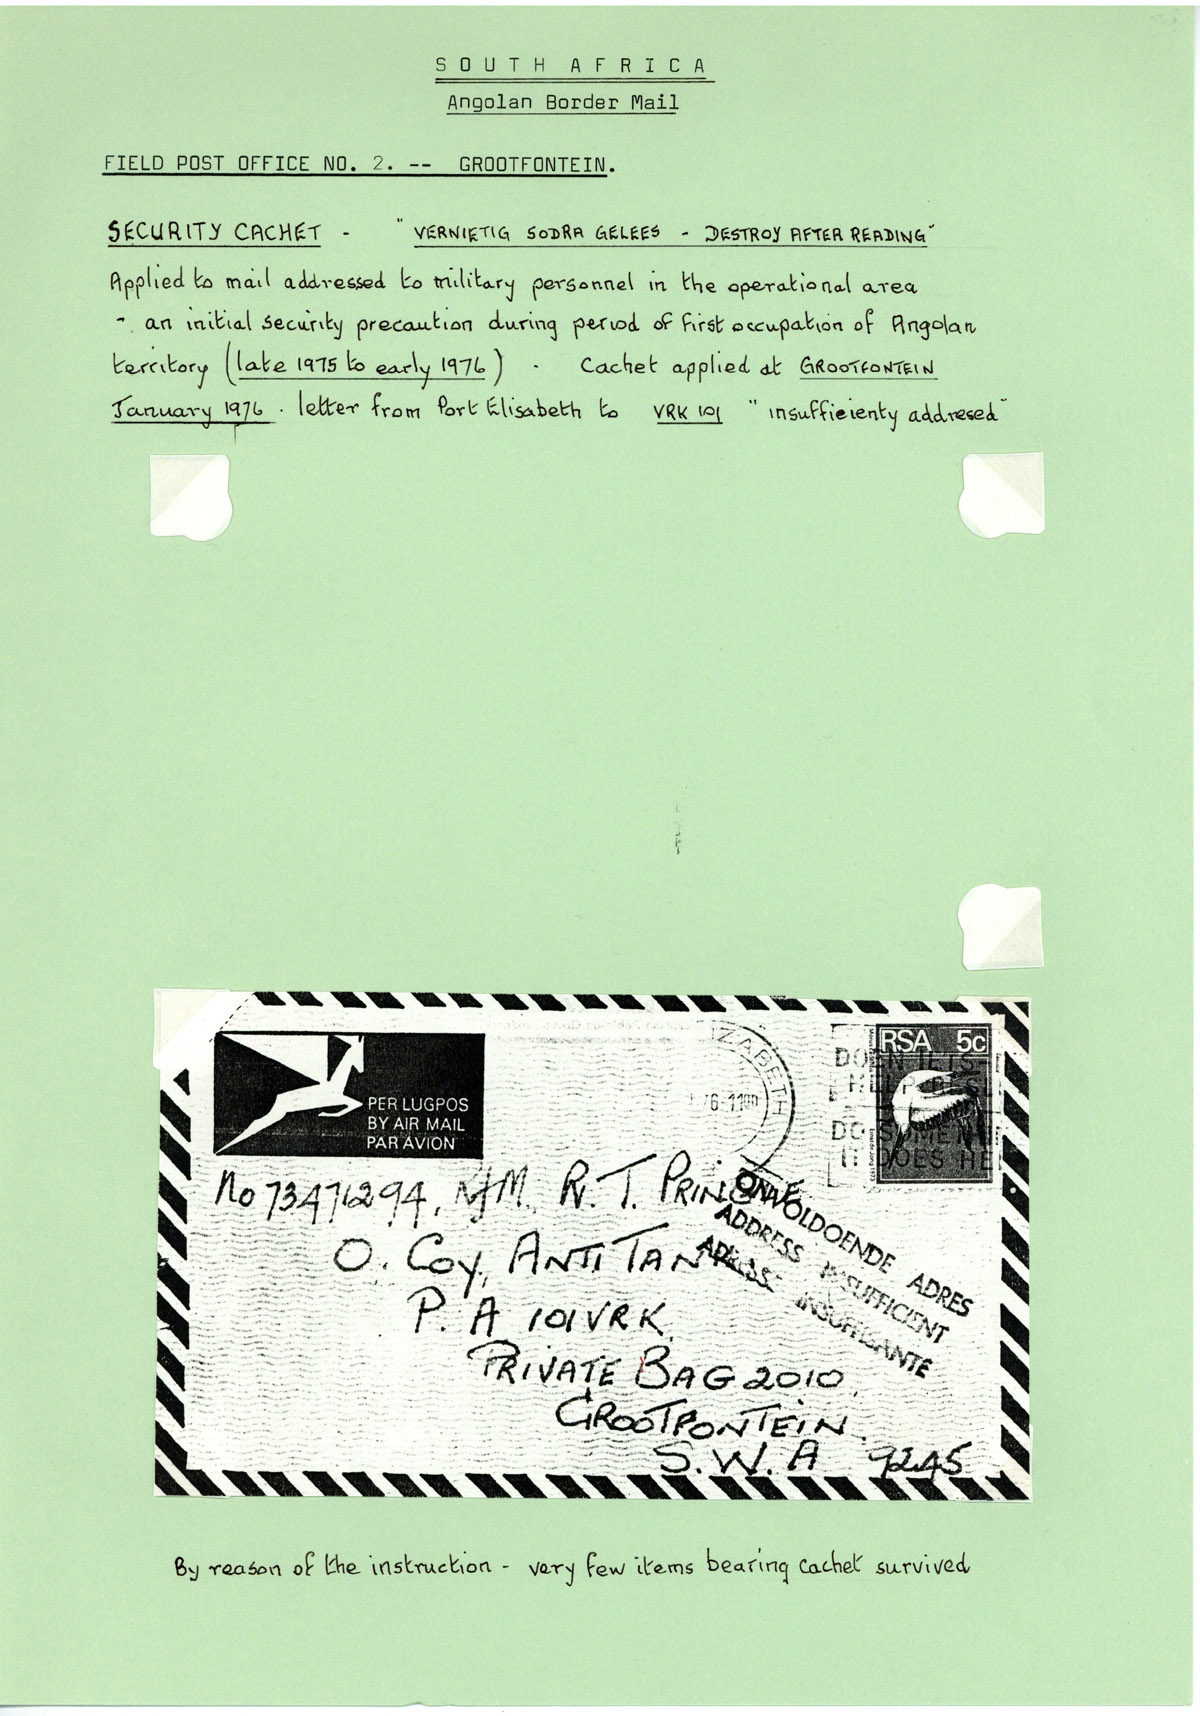 SOUTH AFRICA
Angolan Border Mail
FIELD POST OFFICE NO. 2. -- GROOTFONTEIN.
SECURITY CACHET - "VERNIETIG SODRA GELEES - DESTROY AFTER READING"
Applied to mail addressed to military personnel in the operational area
- an initial security precaution during period of first occupation of Angolan
territory (late 1975 to early 1976) - Cachet applied at GROOTFONTEIN
January 1976. letter from Port Elisabeth to VRK 101 "insufficienty addresed"
IZABETH
RSA 5c
HELP
DOES HE
PER LUGPOS
BY AIR MAIL
PAR AVION
No 73471294, R. T. PRINSLOO
ONVOLDOENDE ADRES
ADDRESS INSUFFICIENT
ADRESSE INSUFFISANTE
O. Coy, ANTI TANK
P. A 101 VRK
PRIVATE BAG 2010,
GROOTFONTEIN.
S.W.A 9245
By reason of the instruction - very few items bearing cachet survived